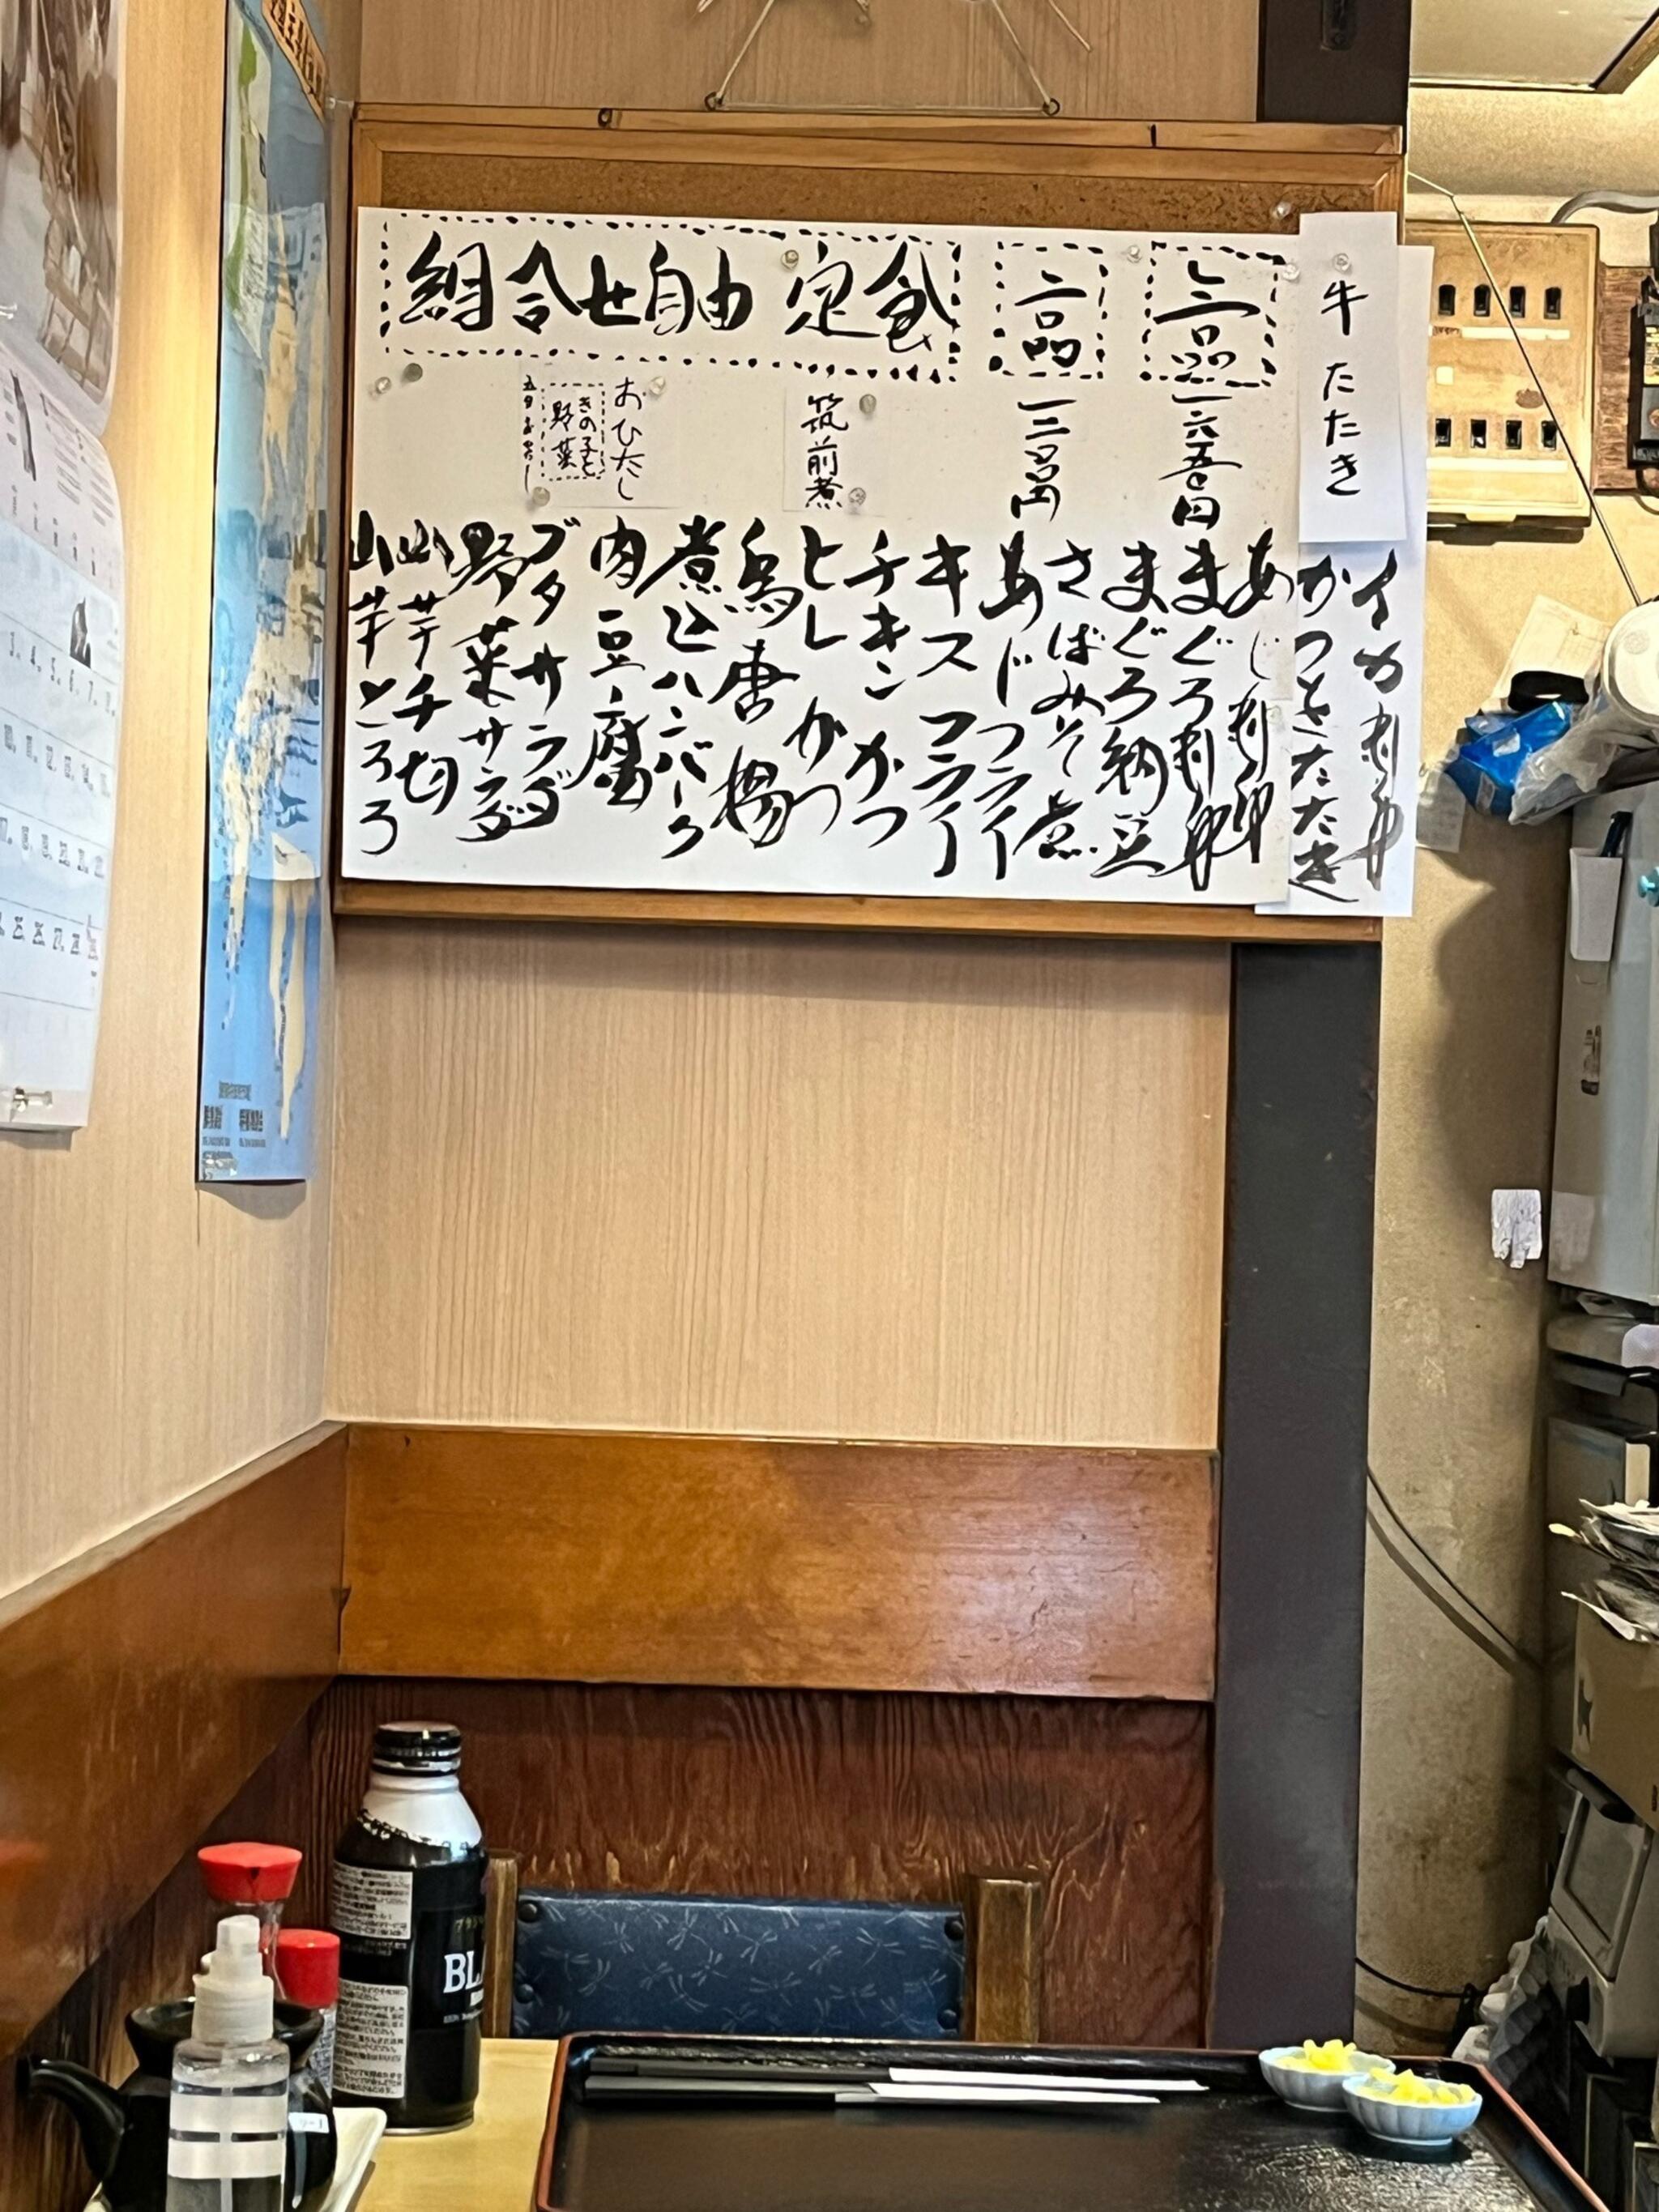 組合せ自由 定食
二品
一三〇〇円
三品
一六五〇円
牛たたき
イカ刺身
かつをたたき
あじ刺身
まぐろ刺身
まぐろ納豆
さばみそ煮
あじフライ
キスフライ
チキンかつ
ヒレかつ
鳥唐揚
煮込ハンバーク
肉豆腐
ブタサラダ
野菜サラダ
山芋千切
山芋とろろ
筑前煮
おひたし
きの子と
野菜
BL